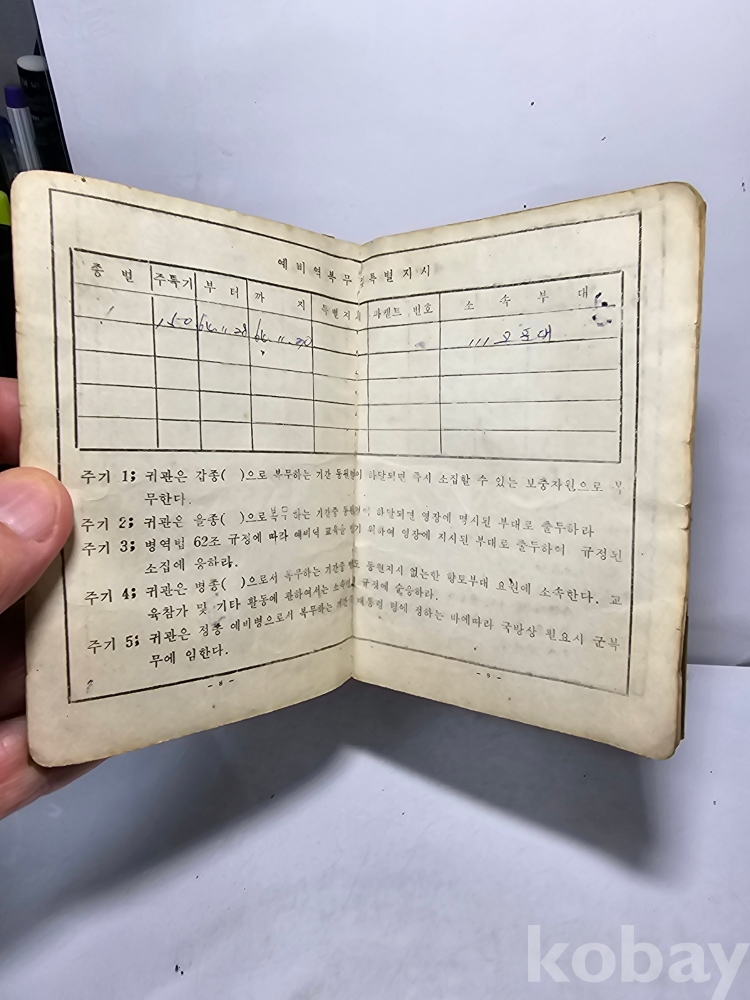 예비역복무 특별지시
종별 주특기 부터 까지 특별지시 파켙트 번호 소속부대
150 111 오포대
주기 1; 귀관은 갑종( )으로 복무하는 기간 동원령이 하달되면 즉시 소집할 수 있는 보충자원으로 복
무한다.
주기 2; 귀관은 을종( )으로복무하는 기간중 동원령이 하달되면 영장에 명시된 부대로 출두하라
주기 3; 병역법 62조 규정에 따라 예비역 교육을 받기 위하여 영장에 지시된 부대로 출두하여 규정된
소집에 응하라.
주기 4; 귀관은 병종( )으로서 복무하는 기간중 동원지시 없는한 향토부대 요원에 소속한다. 교
육참가 및 기타 활동에 관하여서는 규정에 순응하라.
주기 5; 귀관은 정종 예비병으로서 복무하는 기간중 대통령 령에 정하는 바에따라 국방상 필요시 군복
무에 임한다.
- 8 -
- 9 -
kobay